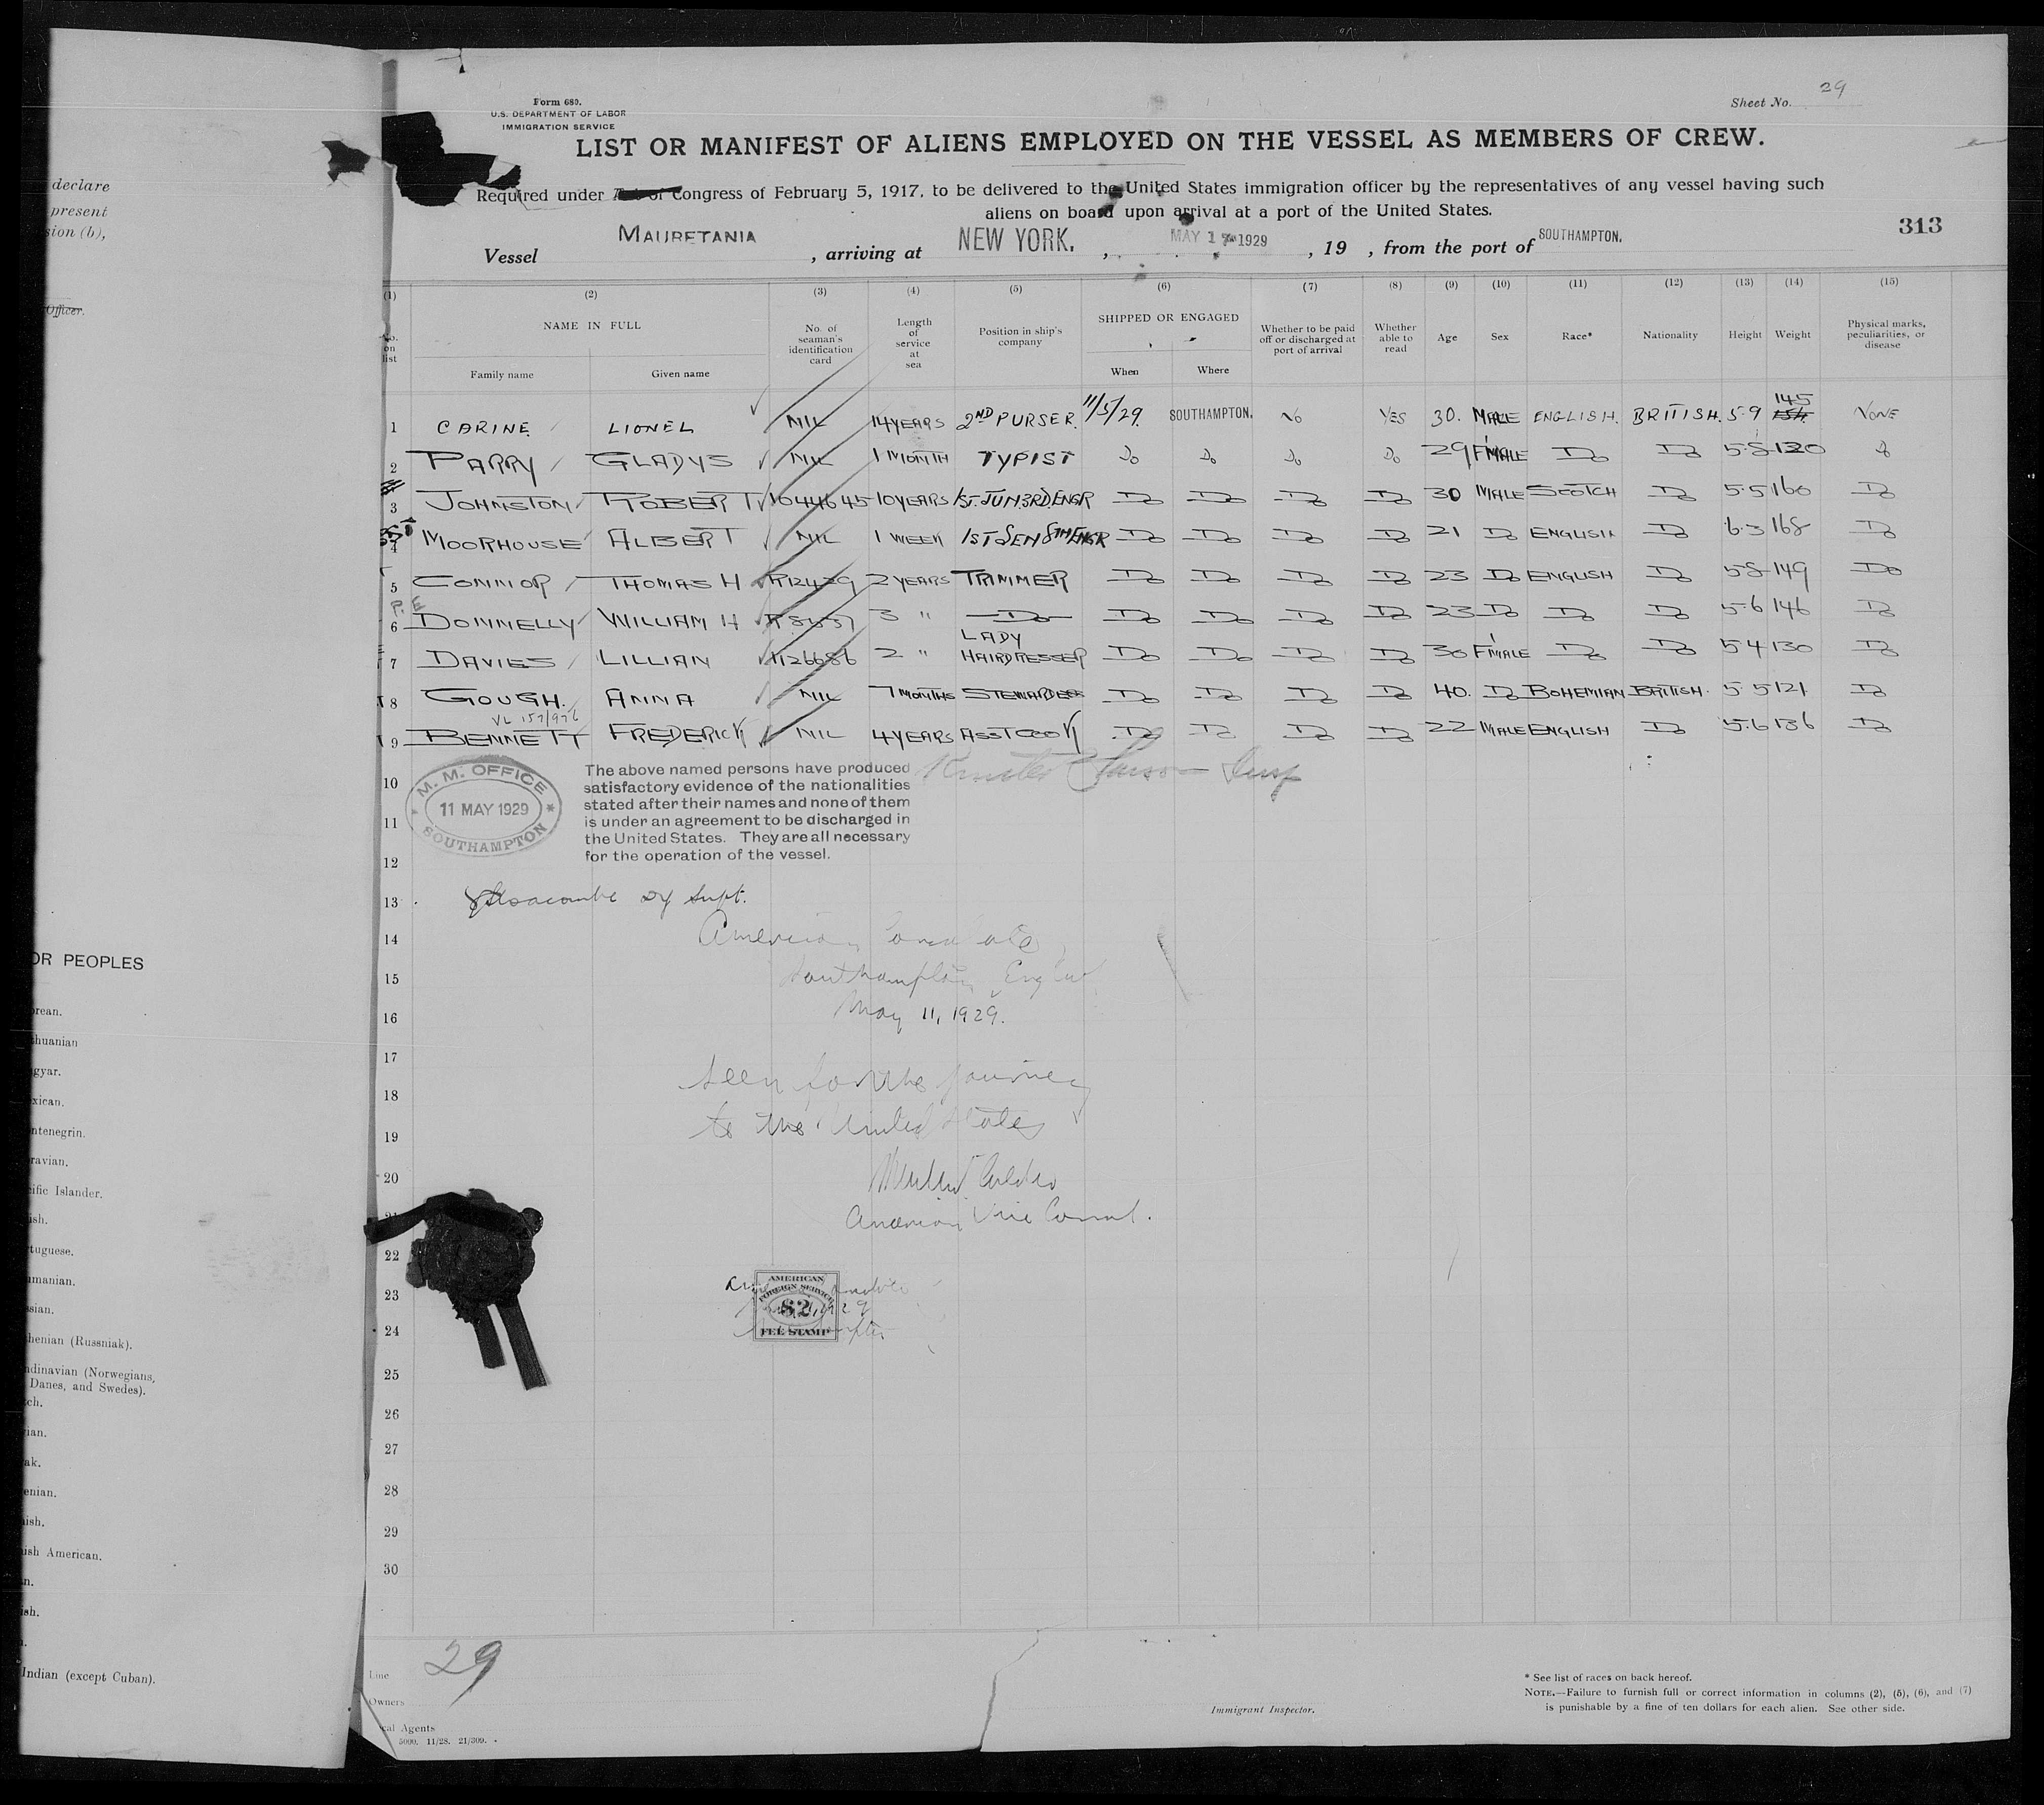 declare
present
sion (b),
Officer.
OR PEOPLES
rean.
huanian
gyar.
xican.
ntenegrin.
ravian.
ific Islander.
ish.
tuguese.
manian.
ssian.
henian (Russniak).
ndinavian (Norwegians,
Danes, and Swedes).
ch.
ian.
ak.
enian.
ish.
ish American.
n.
ish.
Indian (except Cuban).
Form 680.
U.S. DEPARTMENT OF LABOR
IMMIGRATION SERVICE
Sheet No. 29
LIST OR MANIFEST OF ALIENS EMPLOYED ON THE VESSEL AS MEMBERS OF CREW.
Required under Act of Congress of February 5, 1917, to be delivered to the United States immigration officer by the representatives of any vessel having such
aliens on board upon arrival at a port of the United States.
313
Vessel MAURETANIA, arriving at NEW YORK., MAY 17 1929, 19 , from the port of SOUTHAMPTON.
(1) (2) (3) (4) (5) (6) (7) (8) (9) (10) (11) (12) (13) (14) (15)
No. on list NAME IN FULL Family name Given name No. of seaman's identification card Length of service at sea Position in ship's company SHIPPED OR ENGAGED When Where Whether to be paid off or discharged at port of arrival Whether able to read Age Sex Race* Nationality Height Weight Physical marks, peculiarities, or disease
1 CARINE LIONEL NIL 14 YEARS 2ND PURSER. 11/5/29. SOUTHAMPTON. NO YES 30. MALE ENGLISH. BRITISH. 5·9 145 NONE
2 PARRY GLADYS NIL 1 MONTH TYPIST Do Do Do Do 29 F'MALE Do Do 5·8 120 Do
3 JOHNSTON ROBERT 1044645 10 YEARS 1ST. JUN. 3RD. ENGR Do Do Do Do 30 MALE SCOTCH Do 5·5 160 Do
4 MOORHOUSE ALBERT NIL 1 WEEK 1ST SEN 8TH ENGR Do Do Do Do 21 Do ENGLISH Do 6·3 168 Do
5 CONNOR THOMAS H R12429 2 YEARS TRIMMER Do Do Do Do 23 Do ENGLISH Do 5·8 149 Do
P.E
6 DONNELLY WILLIAM H 3 " Do Do Do Do Do 23 Do Do Do 5·6 146 Do
7 DAVIES LILLIAN 1126686 2 " LADY HAIRDRESSER Do Do Do Do 30 F'MALE Do Do 5·4 130 Do
8 GOUGH. ANNA NIL 7 MONTHS STEWARDESS Do Do Do Do 40. Do BOHEMIAN BRITISH. 5·5 121 Do
9 BENNETT FREDERICK NIL 4 YEARS ASST COOK Do Do Do Do 22 MALE ENGLISH Do 5·6 136 Do
M. M. OFFICE
11 MAY 1929
SOUTHAMPTON
The above named persons have produced
satisfactory evidence of the nationalities
stated after their names and none of them
is under an agreement to be discharged in
the United States. They are all necessary
for the operation of the vessel.
10
11
12
13 Supt.
14 American Consulate,
15 Southampton, England
16 May 11, 1929.
17
18 seen for the journey
19 to the United States
20
21 American Vice Consul.
22
23
24
AMERICAN
FOREIGN SERVICE
$2
FEE STAMP
25
26
27
28
29
30
29
Line
Owners
cal Agents
5000. 11/28. 21/309.
Immigrant Inspector.
* See list of races on back hereof.
NOTE.—Failure to furnish full or correct information in columns (2), (5), (6), and (7)
is punishable by a fine of ten dollars for each alien. See other side.